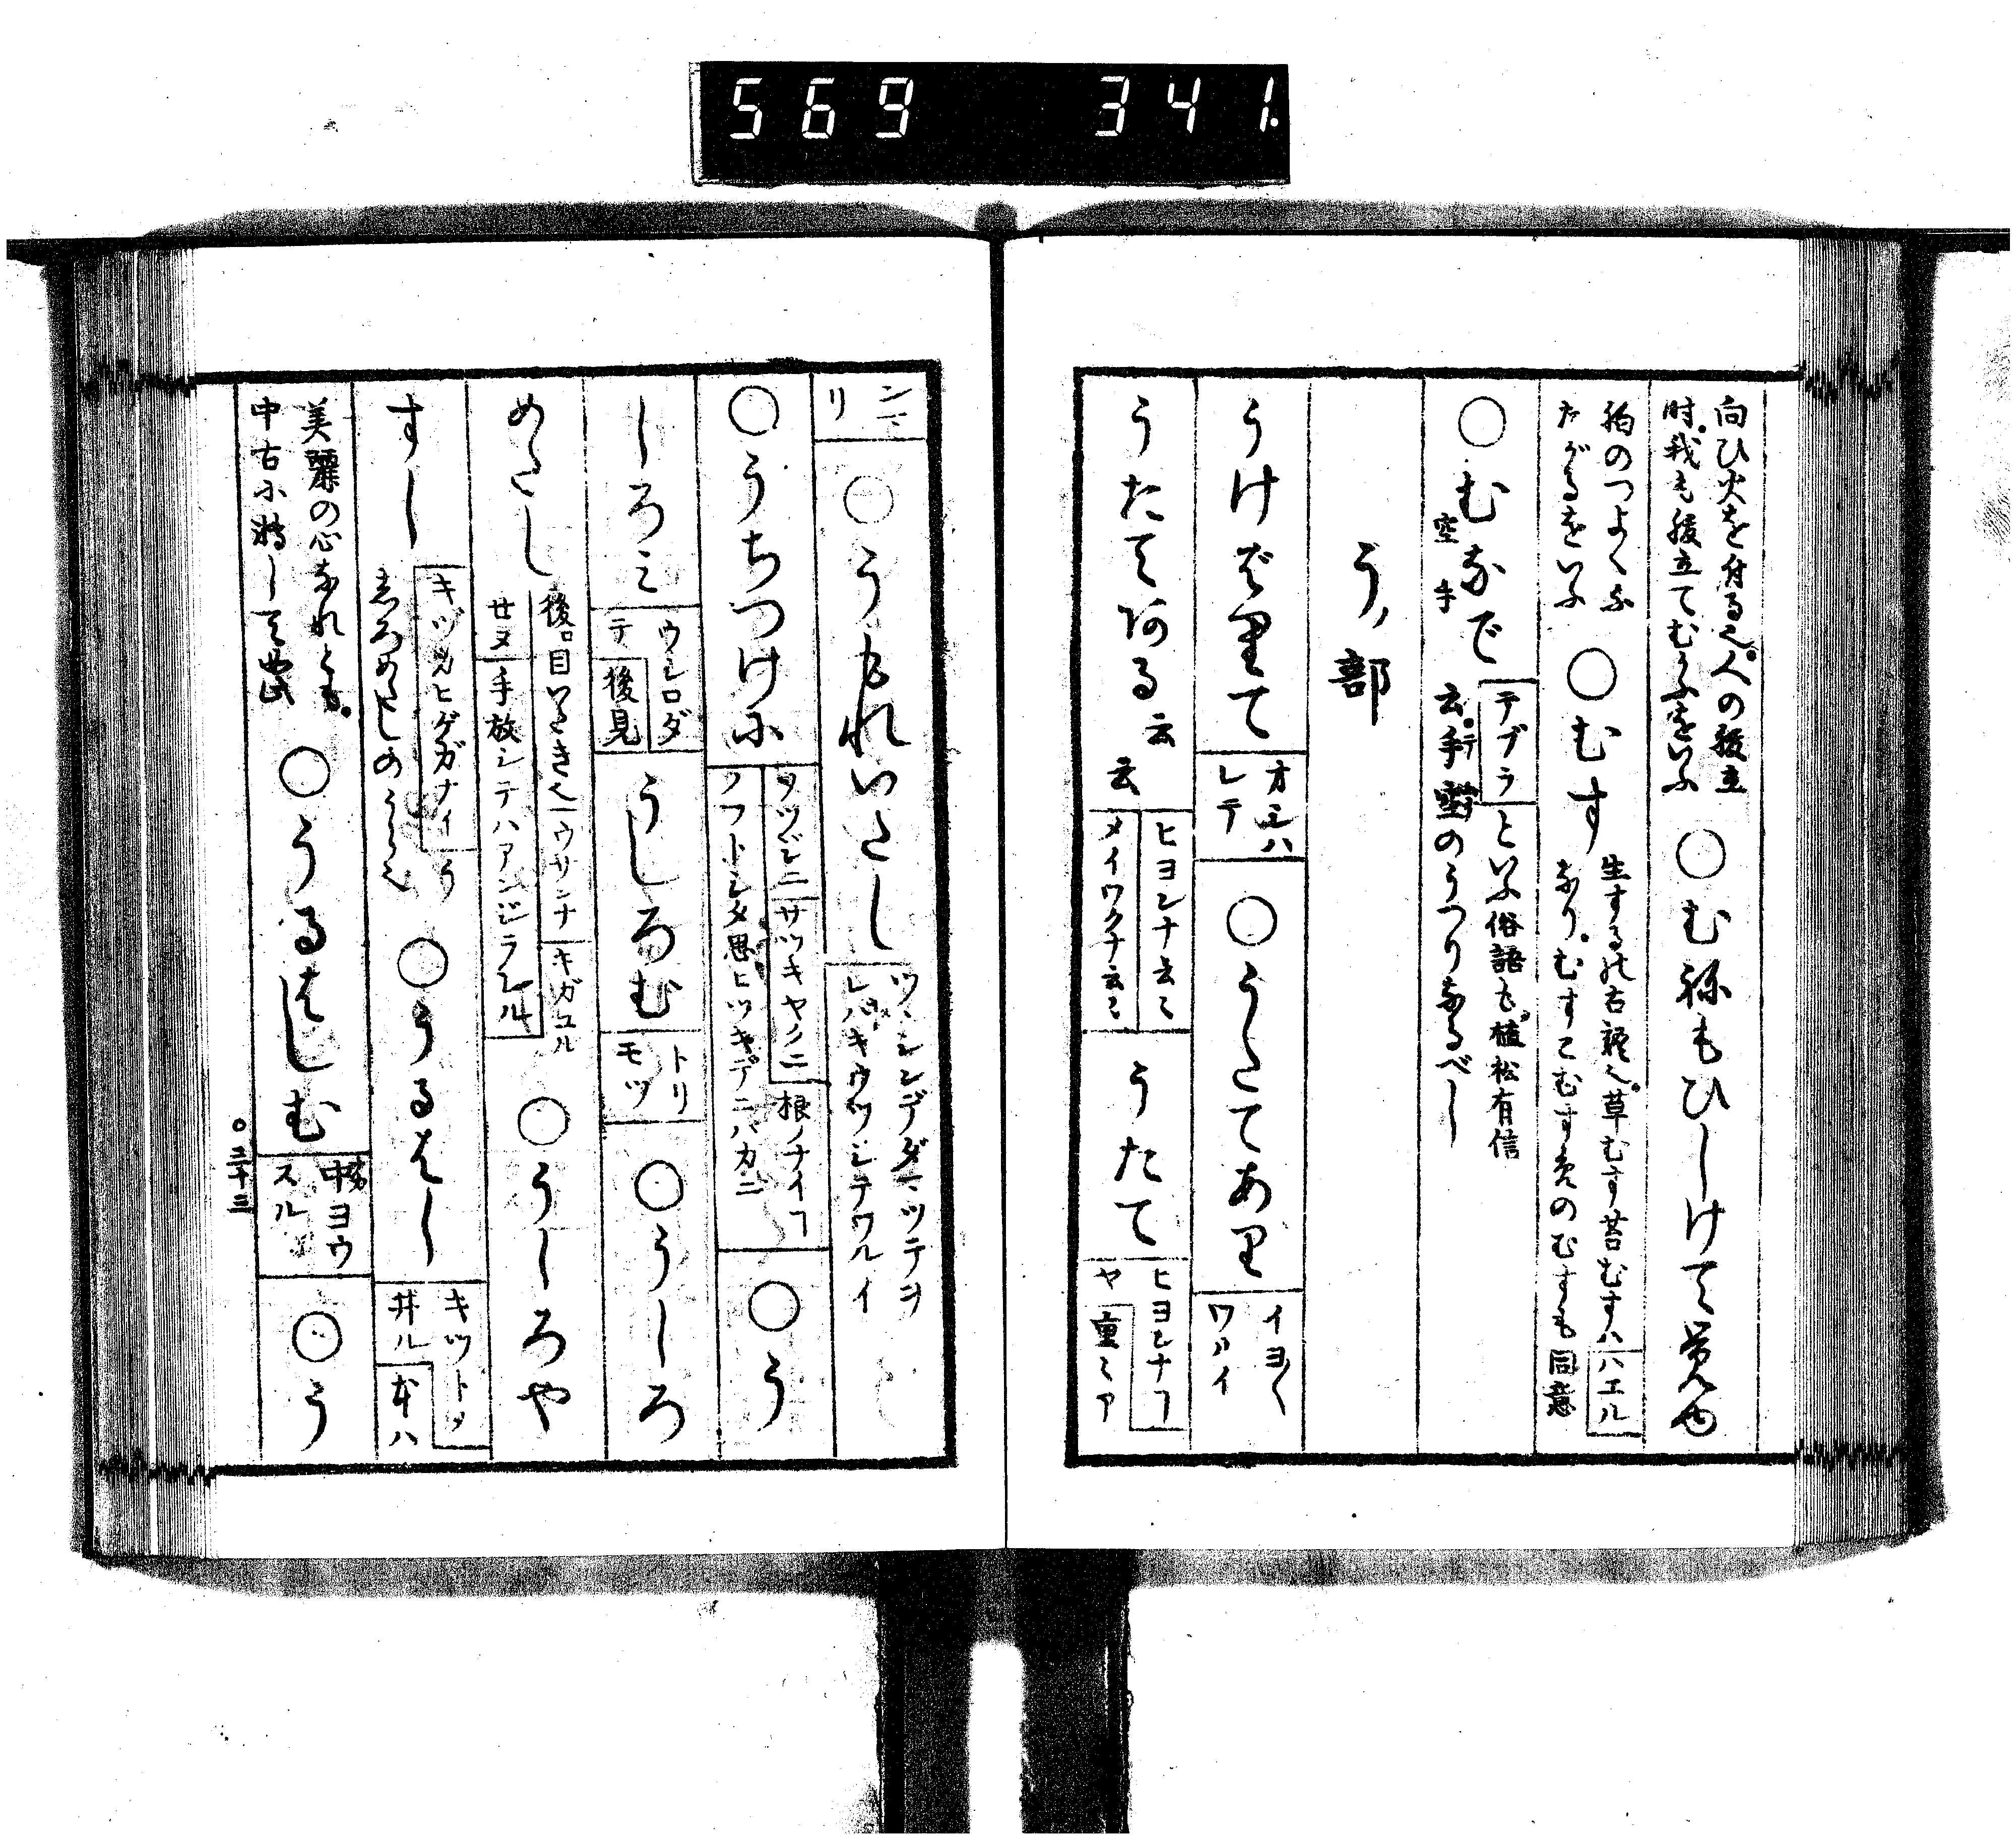 569 341.
向ひ火を付る也。人の腹立
時。我も腹立てむかふをいふ
○むねもひしけて覚ゆ
胸のつよくふ
たがるをいふ
○むす
生する の古語也。草むす苔むすハハエル
なり。むすこむすめのむすも同意
○むなで
空手
テブラといふ俗語も。植松有信
云。手 のうつりなるべし
う,部
うけばりて
オシハ
レテ
○うたてあり
イヨ〱
ワルイ
うたてある云云
ヒヨンナ云〻
メイワクナ云〻
うたて
ヒヨンナヿ
ヤ重〻ア
ンマ
リ
○うもれいたし
ツヽシンデダマツテヲ
レバキウツシテワルイ
○うちつけに
ヲツゲニサツキヤクニ根ノナイヿ
ノフトシタ思ヒツキデニハカニ
○う
しろミ
ウシロダ
テ後見
うしろむ
トリ
モツ
○うしろ
めたし
後ロ目いたき也ウサンナキガユル
サヌ手放シテハアンジラルル
○うしろや
すし
キヅカヒゲガナイう
しろめたしのうら也
○うるはし
キツトシ
井ル本ハ
美麗の心なれとも。
中古に転して
○うるはしむ
中ヨウ
スル
○う
○二十三